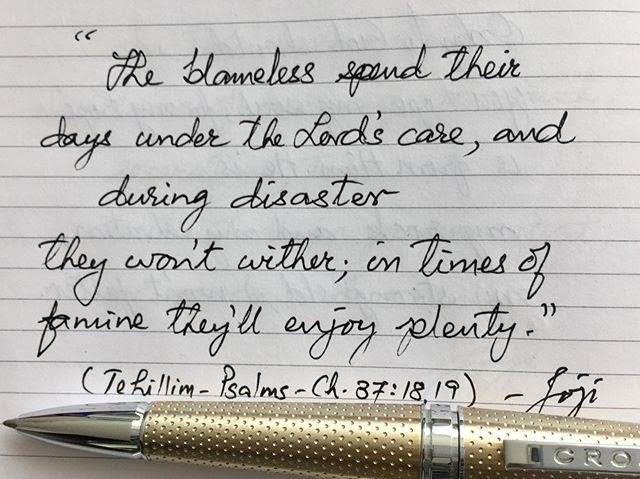 "The blameless spend their
days under the Lord's care, and
during disaster
they won't wither; in times of
famine they'll enjoy plenty."
(Tehillim - Psalms - Ch. 37:18,19) - Joji
CRO